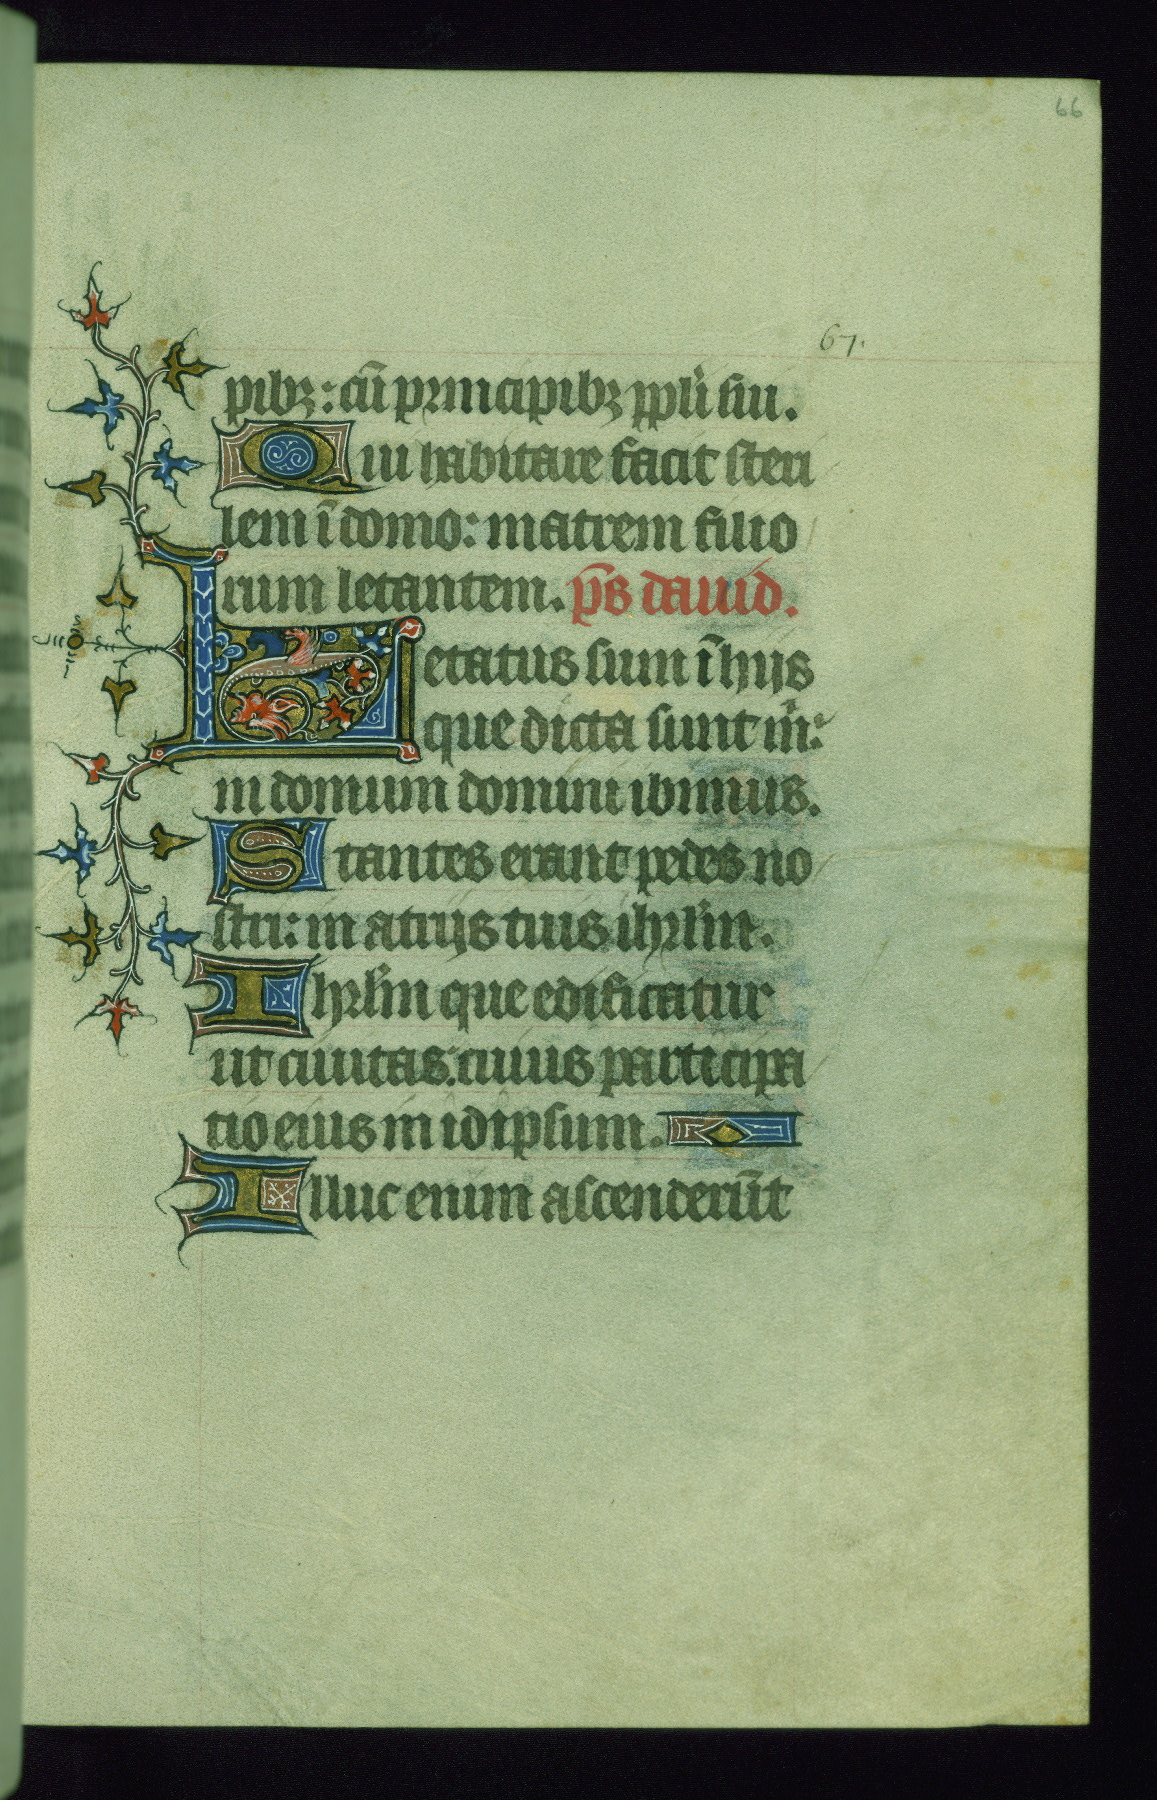 66
67.
pibꝫ: cū principibꝫ ppl'i sui.
Qui habitare facit steri
lem ī domo: matrem filio
rum letantem. p̄s dauid.
Letatus sum ī hijs
que dicta sunt m͛:
in domum domini ibimus.
Stantes erant pedes no
stri: in atrijs tuis ihrl'm.
Ihrl'm que edificatur
ut ciuitas: cuius participa
tio eius in idipsum.
Illuc enim ascenderūt